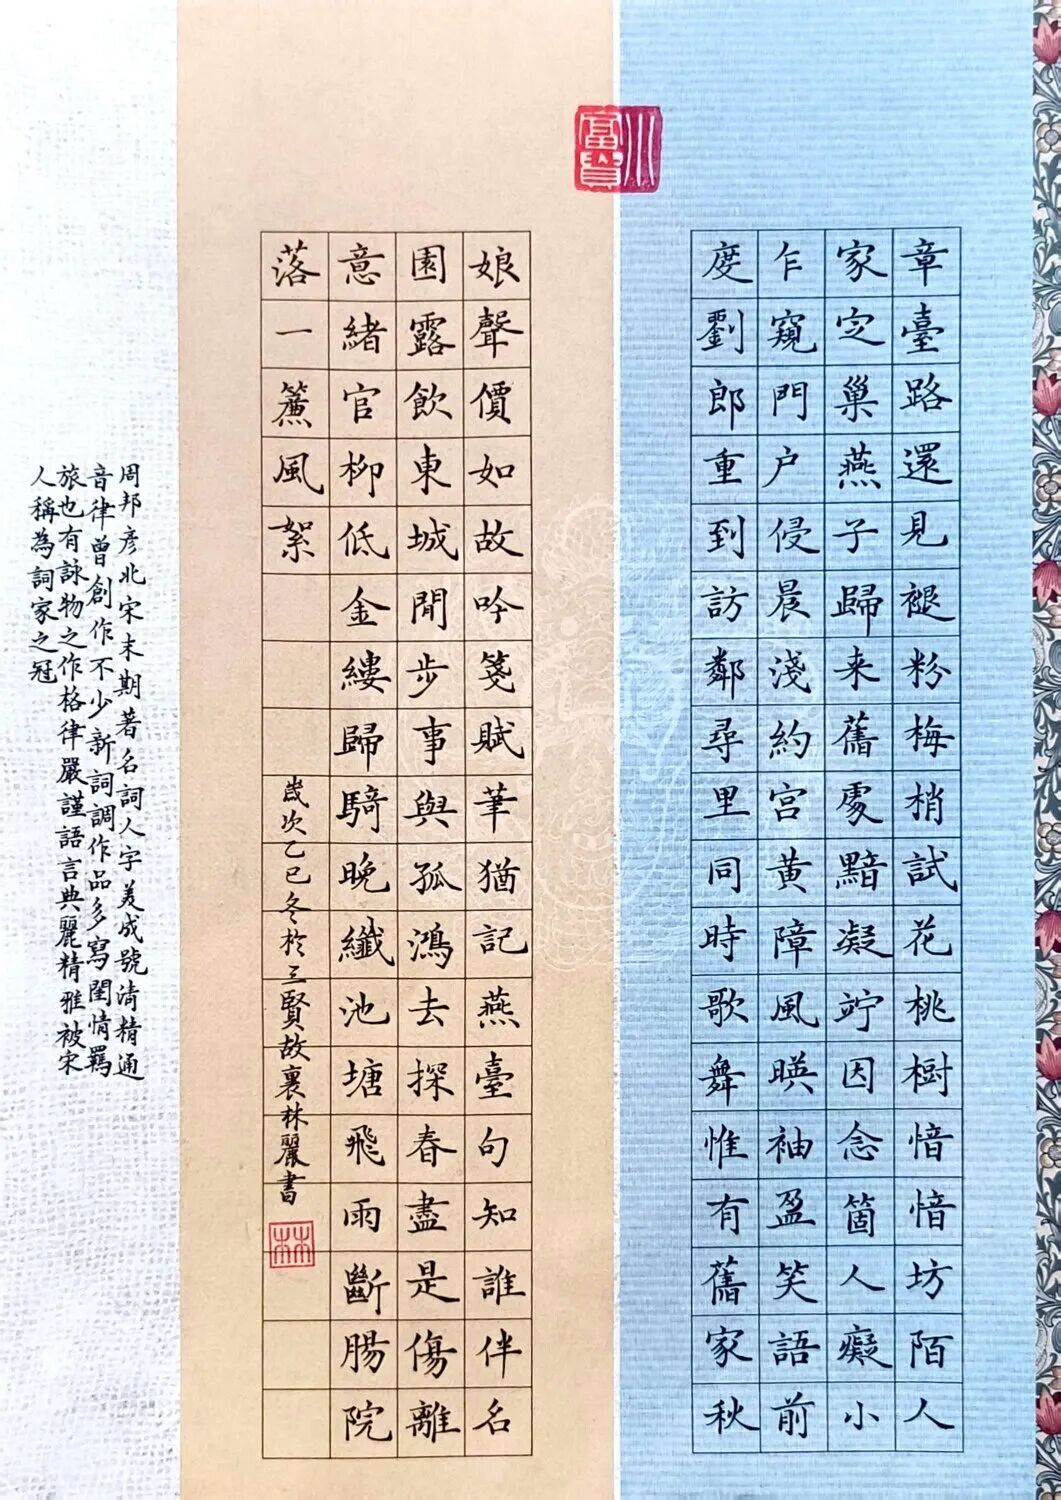 章臺路還見褪粉梅梢試花桃樹愔愔坊陌人
家定巢燕子歸来舊處黯凝竚因念箇人癡小
乍窺門户侵晨淺約宮黄障風暎袖盈笑語前
度劉郎重到訪鄰尋里同時歌舞惟有舊家秋
娘聲價如故吟箋賦筆猶記燕臺句知誰伴名
園露飲東城閒步事與孤鴻去探春盡是傷離
意緒官柳低金縷歸騎晚纖池塘飛雨斷腸院
落一簾風絮
歲次乙巳冬於三賢故裏林麗書
林
富貴
周邦彦北宋末期著名詞人字美成號清精通
音律曾創作不少新詞調作品多寫閨情羈
旅也有詠物之作格律嚴謹語言典麗精雅被宋
人稱為詞家之冠